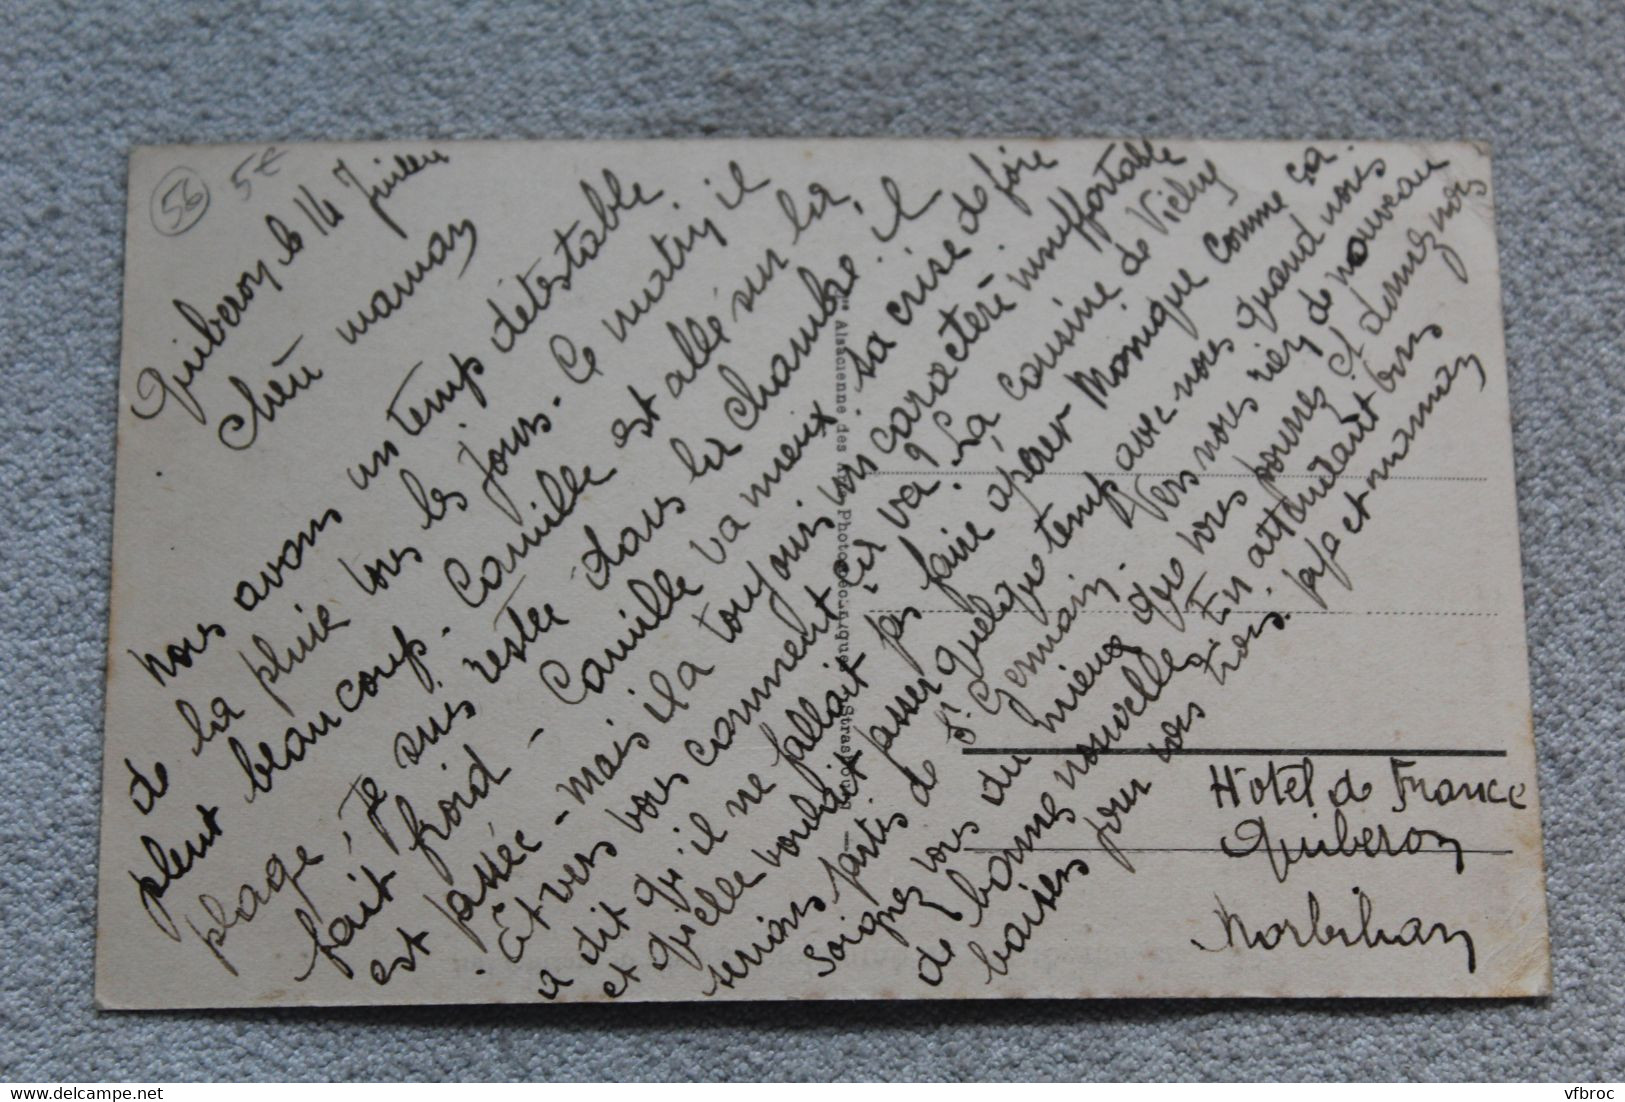 56 5€
Quiberon le 14 Juillet
Chère maman
nous avons un temps détestable
de la pluie tous les jours. Ce matin il
pleut beaucoup. Camille est allé sur la
plage, je suis restée dans la chambre il
fait froid - Camille va mieux sa crise de foie
est passée - mais il a toujours un caractère insuffortable
- Et vers vous comment ça va ? La cousine de Vichy
a dit qu'il ne fallait pas faire opérer Monique comme ça.
et qu'elle voudrait passer quelque temps avec nous quand nous
serions partis de St Germain. Vers nous rien de nouveau
Soignez vous du mieux que vous pouvez et donnez nous
de bonnes nouvelles En attendant bons
baisers pour vos trois. papa et maman
Alsacienne des Photomécaniques Strasbourg
Hôtel de France
Quiberon
Morbihan
delcampe.net
vfbroc